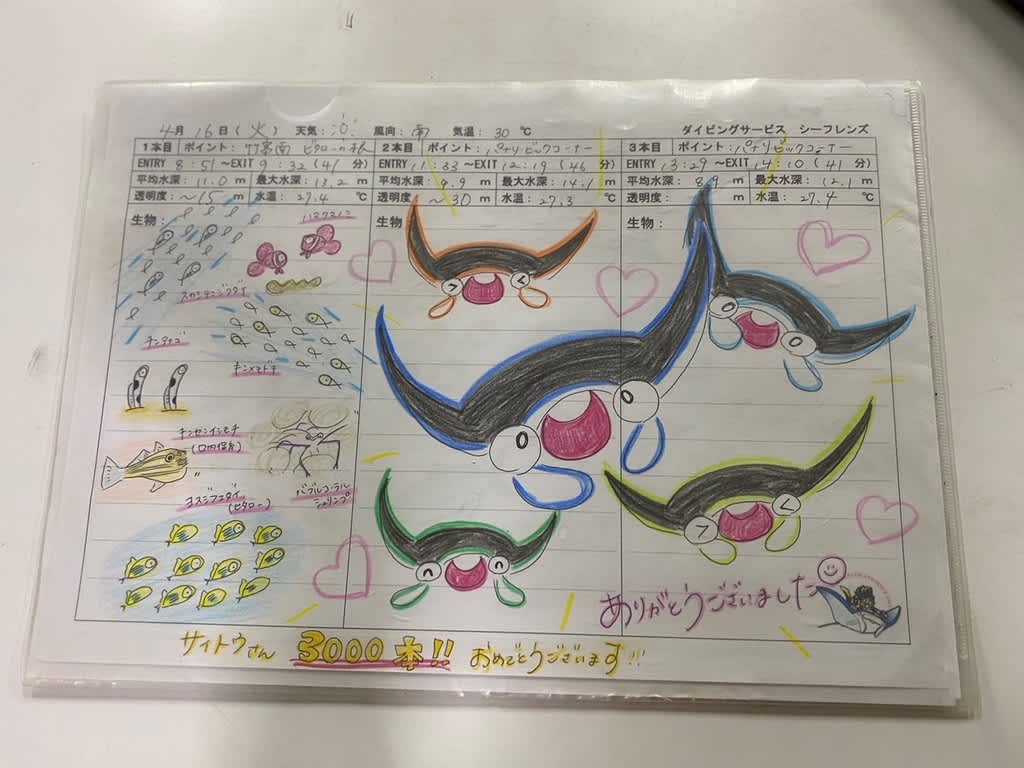 4月16日(火) 天気: 風向: 南 気温: 30 ℃ ダイビングサービス シーフレンズ
1本目 ポイント: 竹富南 ビタローの根 2本目 ポイント: パナリビッグコーナー 3本目 ポイント: パナリビッグコーナー
ENTRY 8:51 ~EXIT 9:32 (41 分) ENTRY 11:33 ~EXIT 12:19 (46 分) ENTRY 13:29 ~EXIT 14:10 (41 分)
平均水深: 11.0 m 最大水深: 13.2 m 平均水深: 9.9 m 最大水深: 14.1 m 平均水深: 8.9 m 最大水深: 12.1 m
透明度: ~15 m 水温: 27.4 ℃ 透明度: ~30 m 水温: 27.3 ℃ 透明度: m 水温: 27.4 ℃
生物: 生物: 生物:
ハダカハオコゼ
スカシテンジクダイ
チンアナゴ
キンメモドキ
キンセンイシモチ
(口内保育)
ヨスジフエダイ
(ビタロー)
バブルコーラル
シュリンプ
ありがとうございました
サイトウさん 3000本!! おめでとうございます!!!